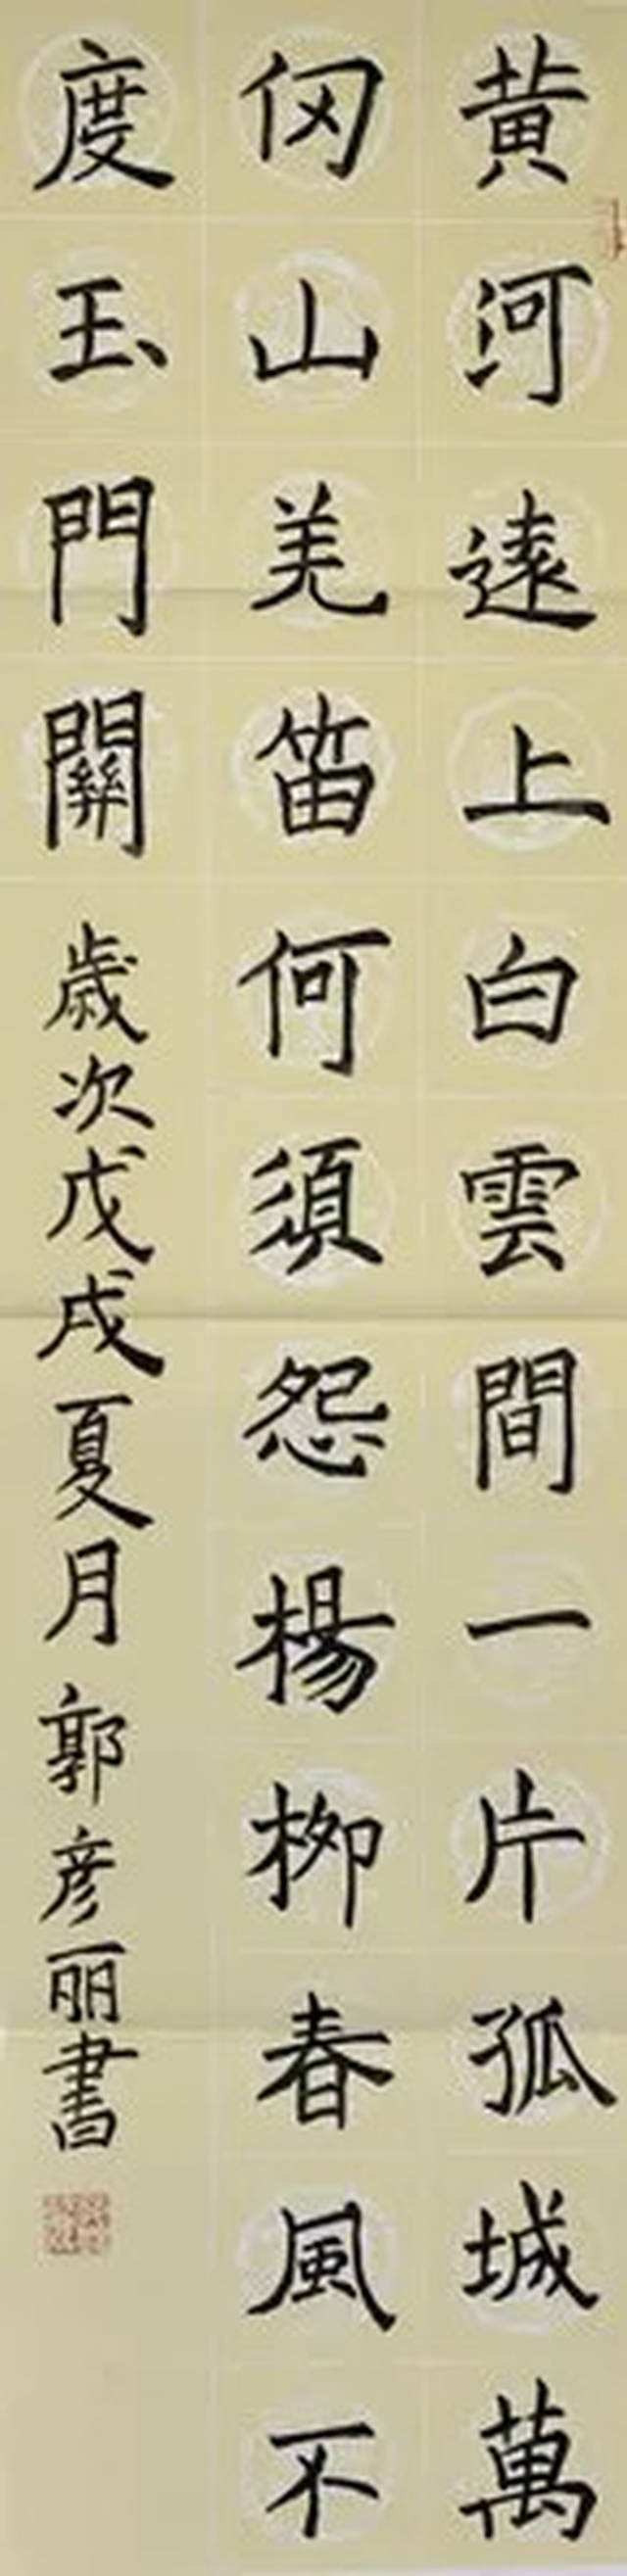 黃河遠上白雲間一片孤城萬
仞山羌笛何須怨楊柳春風不
度玉門關 歲次戊戌夏月 郭彦丽書